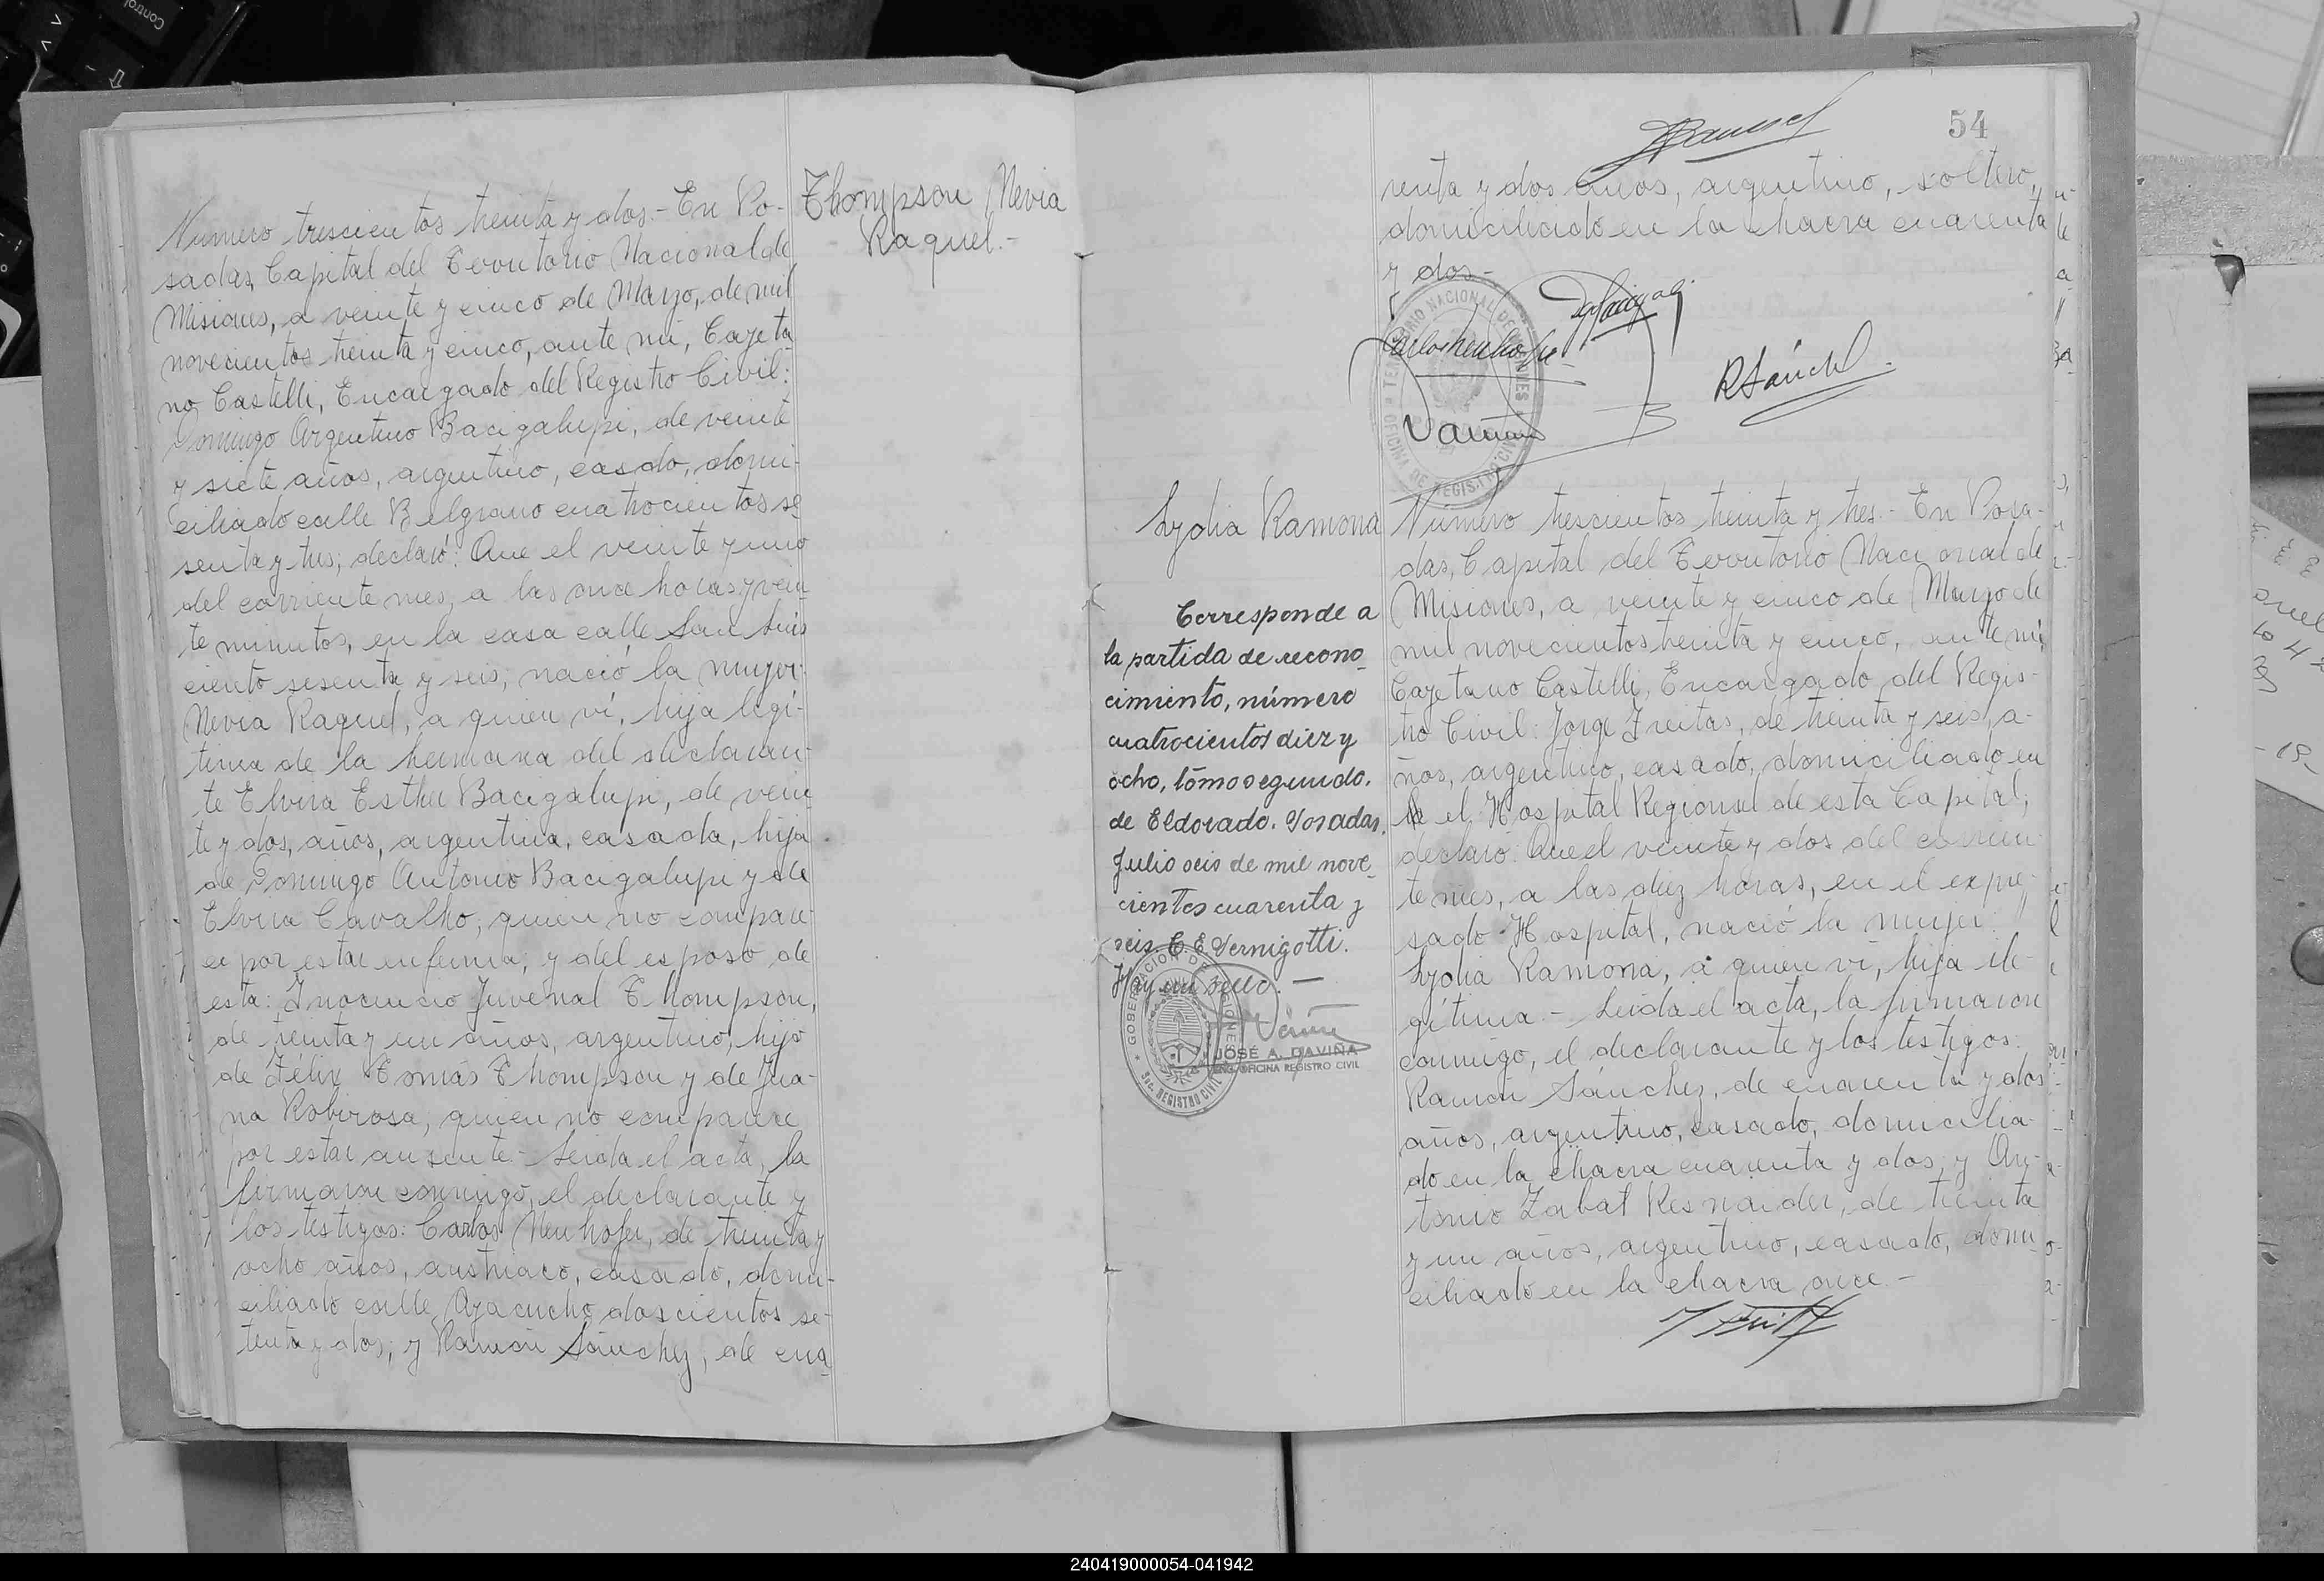 Thompson Nevia
Raquel.-
Número trescientos treinta y dos.- En Po-
sadas, Capital del Territorio Nacional de
Misiones, a veinte y cinco de Marzo, de mil
novecientos treinta y cinco, ante mí, Cayeta
no Castelli, Encargado del Registro Civil:
Domingo Argentino Bacigalupi, de veinte
y siete años, argentino, casado, domi-
ciliado calle Belgrano cuatrocientos se
senta y tres, declaró: Que el veinte y uno
del corriente mes, a las once horas y vein
te minutos, en la casa calle San Luis
ciento sesenta y seis, nació la mujer:
Nevia Raquel, a quien ví, hija legí-
tima de la hermana del declaran-
te Elvira Esther Bacigalupi, de vein
te y dos, años, argentina, casada, hija
de Domingo Antonio Bacigalupi y de
Elvira Cavalho, quien no compare-
ce por estar enferma; y del esposo de
esta: Inocencio Juvenal Thompson,
de treinta y un años, argentino, hijo
de Félix Tomás Thompson y de Jua-
na Robirosa, quien no comparece
por estar ausente.- Leida el acta, la
firmaron conmigo, el declarante y
los testigos: Carlos Neuhofer, de treinta y
ocho años, austriaco, casado, domi-
ciliado calle Ayacucho doscientos se-
tenta y dos; y Ramón Sánchez, de cua
54
renta y dos años, argentino, soltero,
domiciliado en la chacra cuarenta
y dos.-
Carlos Neuhofer
R Sánchez
TERRITORIO NACIONAL DE MISIONES
OFICINA DE REGISTRO CIVIL
Lydia Ramona
Número trescientos treinta y tres.- En Posa-
das, Capital del Territorio Nacional de
Misiones, a veinte y cinco de Marzo de
mil novecientos treinta y cinco, ante mí,
Cayetano Castelli, Encargado del Regis-
tro Civil: Jorge Freitas, de treinta y seis, a-
ños, argentino, casado, domiciliado en
el Hospital Regional de esta Capital;
declaró: Que el veinte y dos del corrien
te mes, a las diez horas, en el expre-
sado Hospital, nació la mujer:
Lydia Ramona, a quien ví, hija ile-
gítima.- Leida el acta, la firmaron
conmigo, el declarante y los testigos:
Ramón Sánchez, de cuarenta y dos
años, argentino, casado, domicilia-
do en la chacra cuarenta y dos; y An-
tonio Zabat Resnaider, de treinta
y un años, argentino, casado, domi
ciliado en la chacra once.-
Corresponde a
la partida de recono
cimiento, número
cuatrocientos diez y
ocho, tomo segundo.
de Eldorado. Posadas,
Julio seis de mil nove
cientos cuarenta y
seis. E. E. Vernigotti.
Hay un sello.-
JOSÉ A. DAVIÑA
ENC. OFICINA REGISTRO CIVIL
240419000054-041942